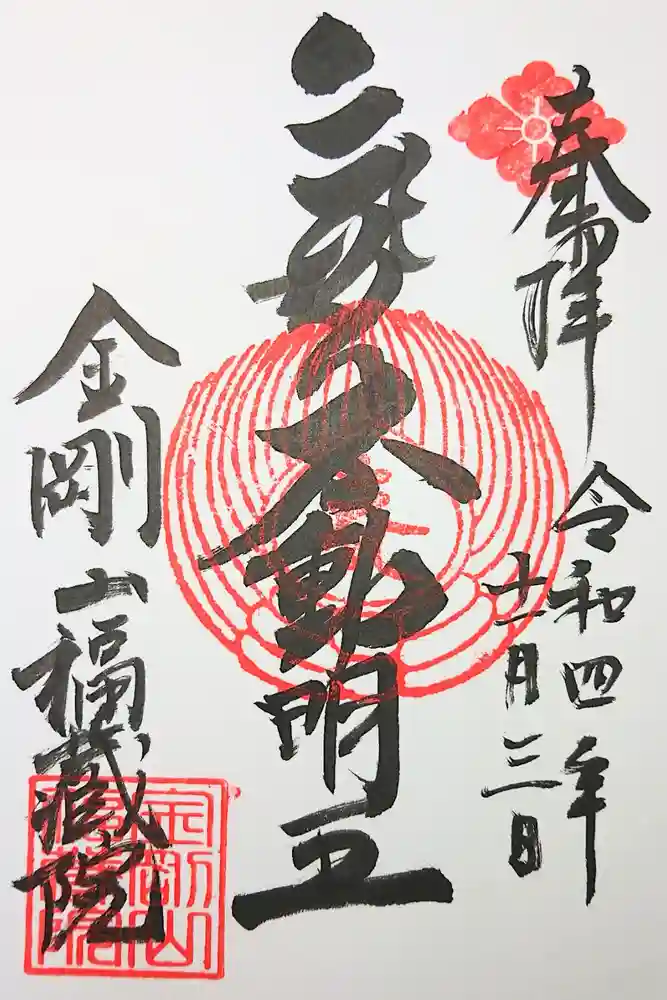 奉拝
令和四年
十一月三日
不動明王
金剛山福蔵院
金剛山
福蔵院